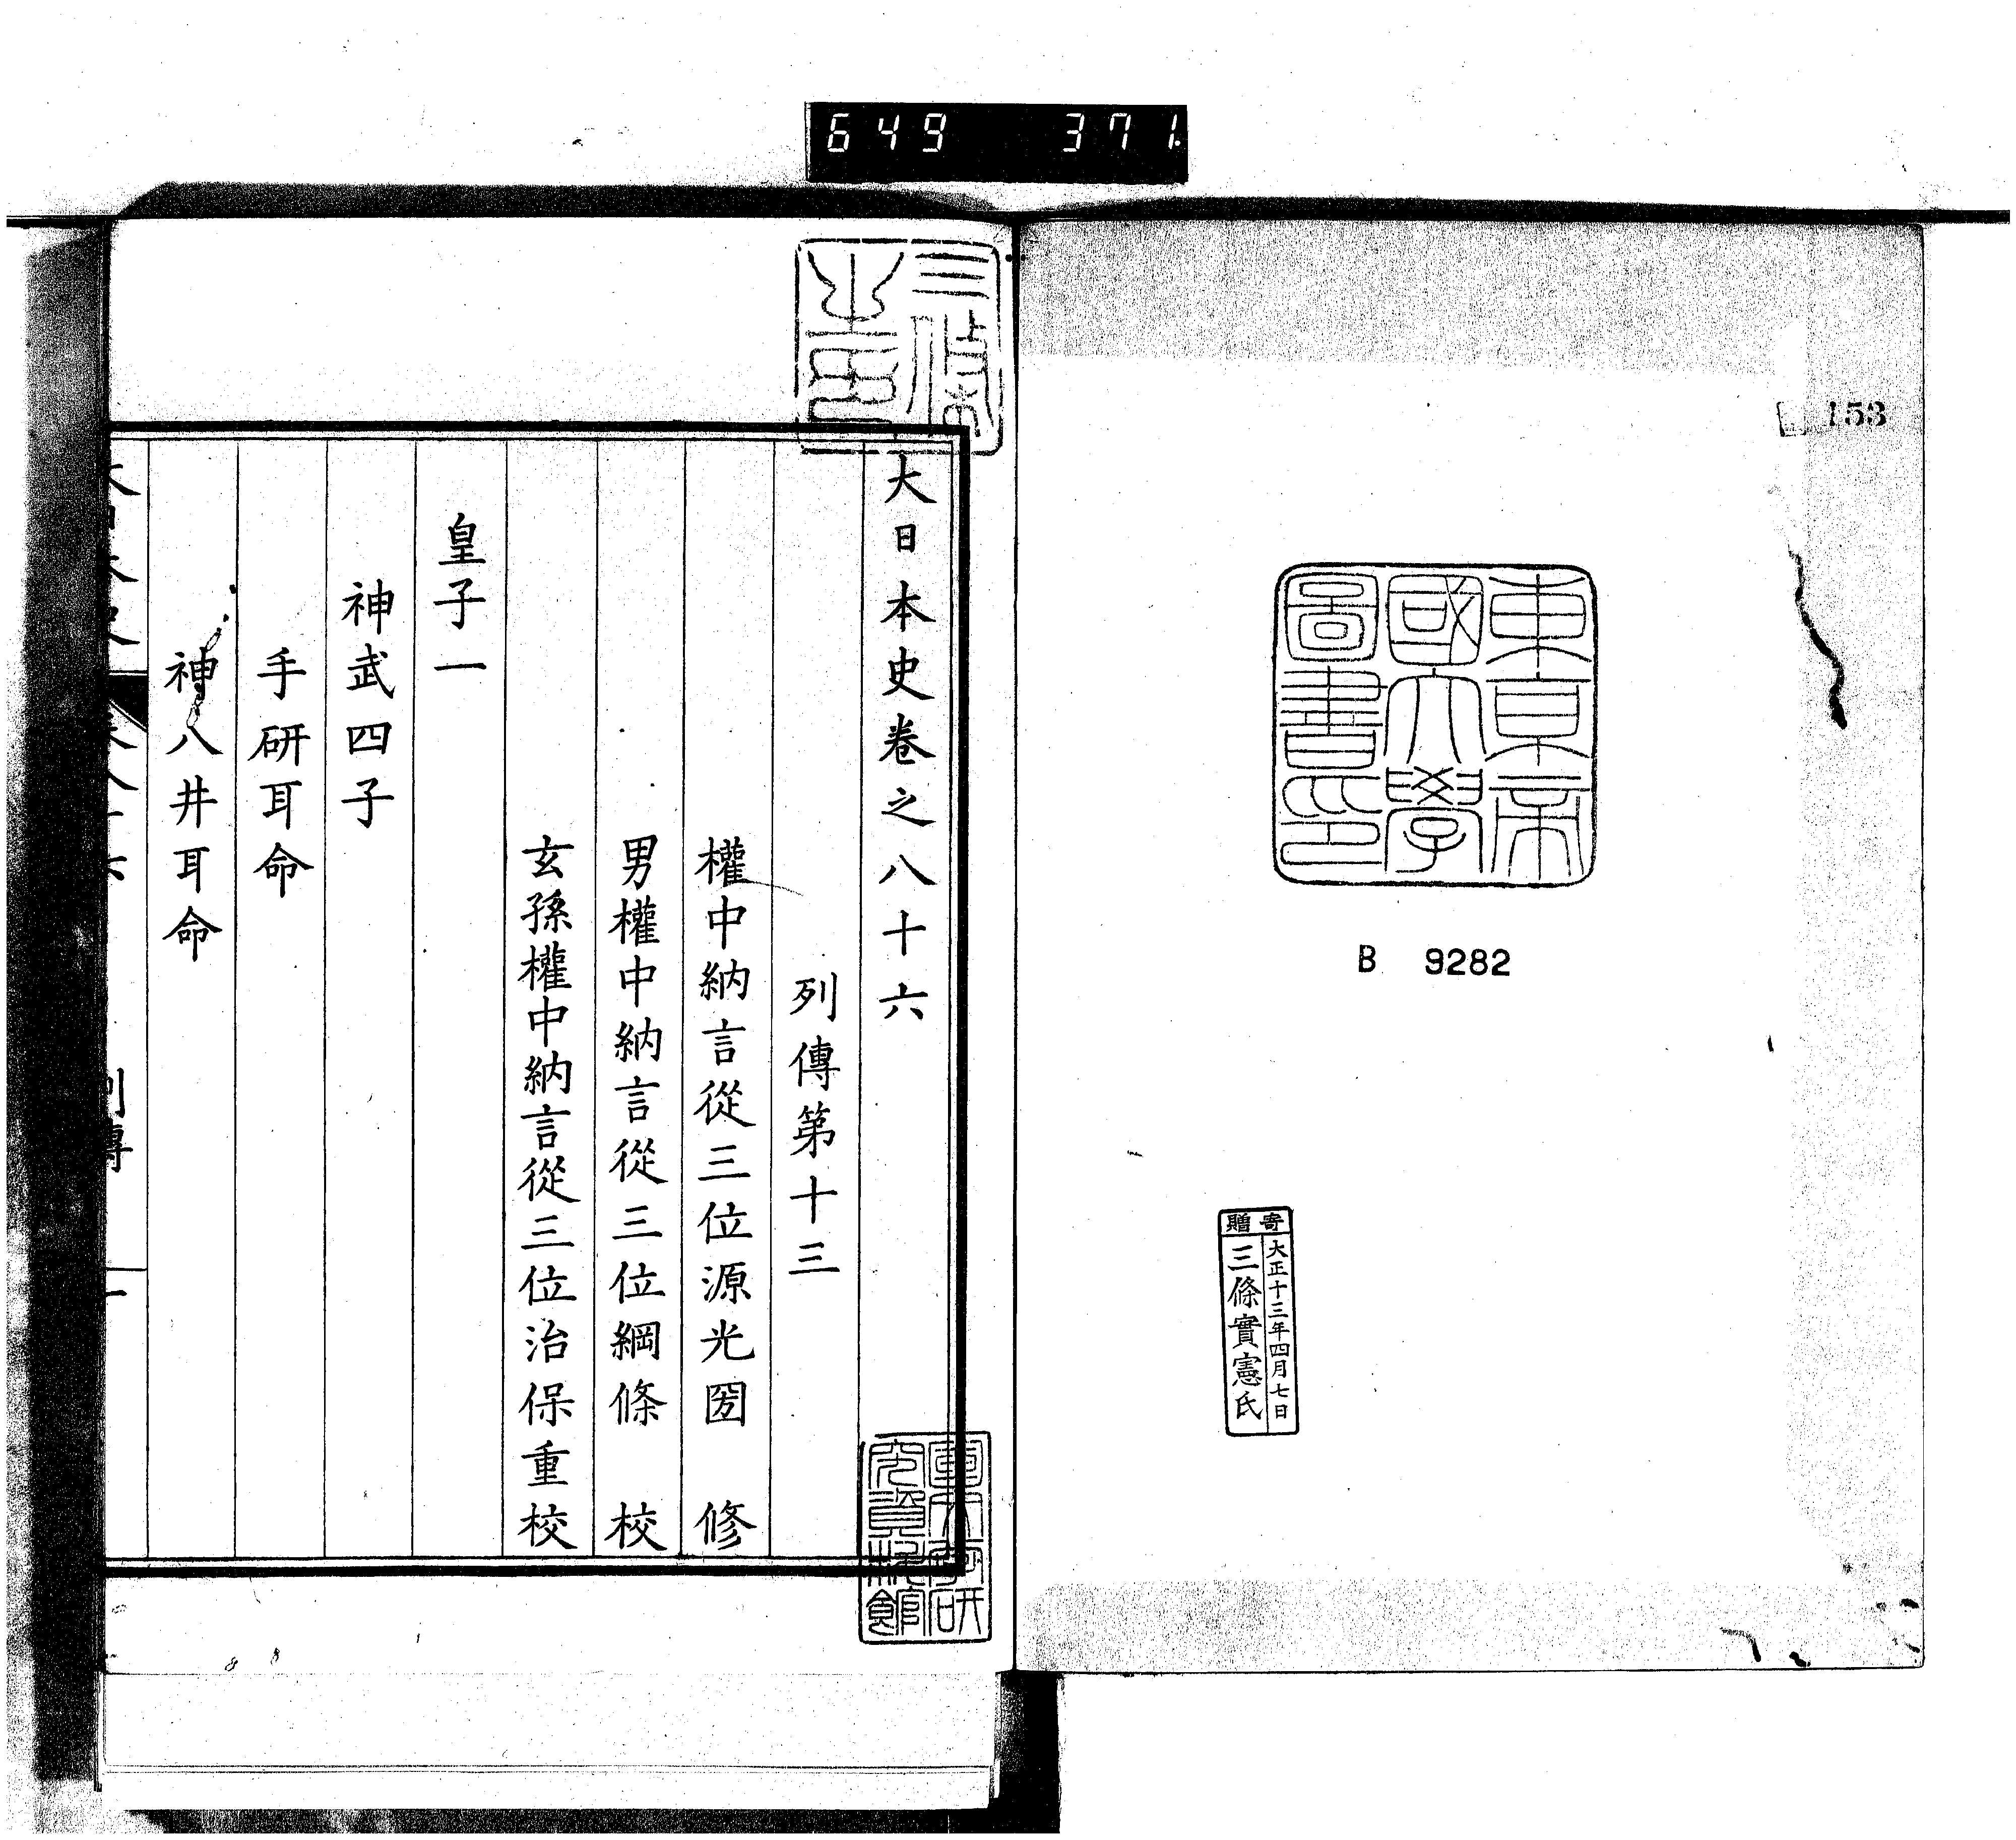 649 371.
153
東京帝
國大學
圖書印
B 9282
寄贈
大正十三年四月七日
三條實憲氏
三條
大日本史卷之八十六
列傳第十三
權中納言從三位源光圀 修
男權中納言從三位綱條 校
玄孫權中納言從三位治保重校
皇子一
神武四子
手研耳命
神八井耳命